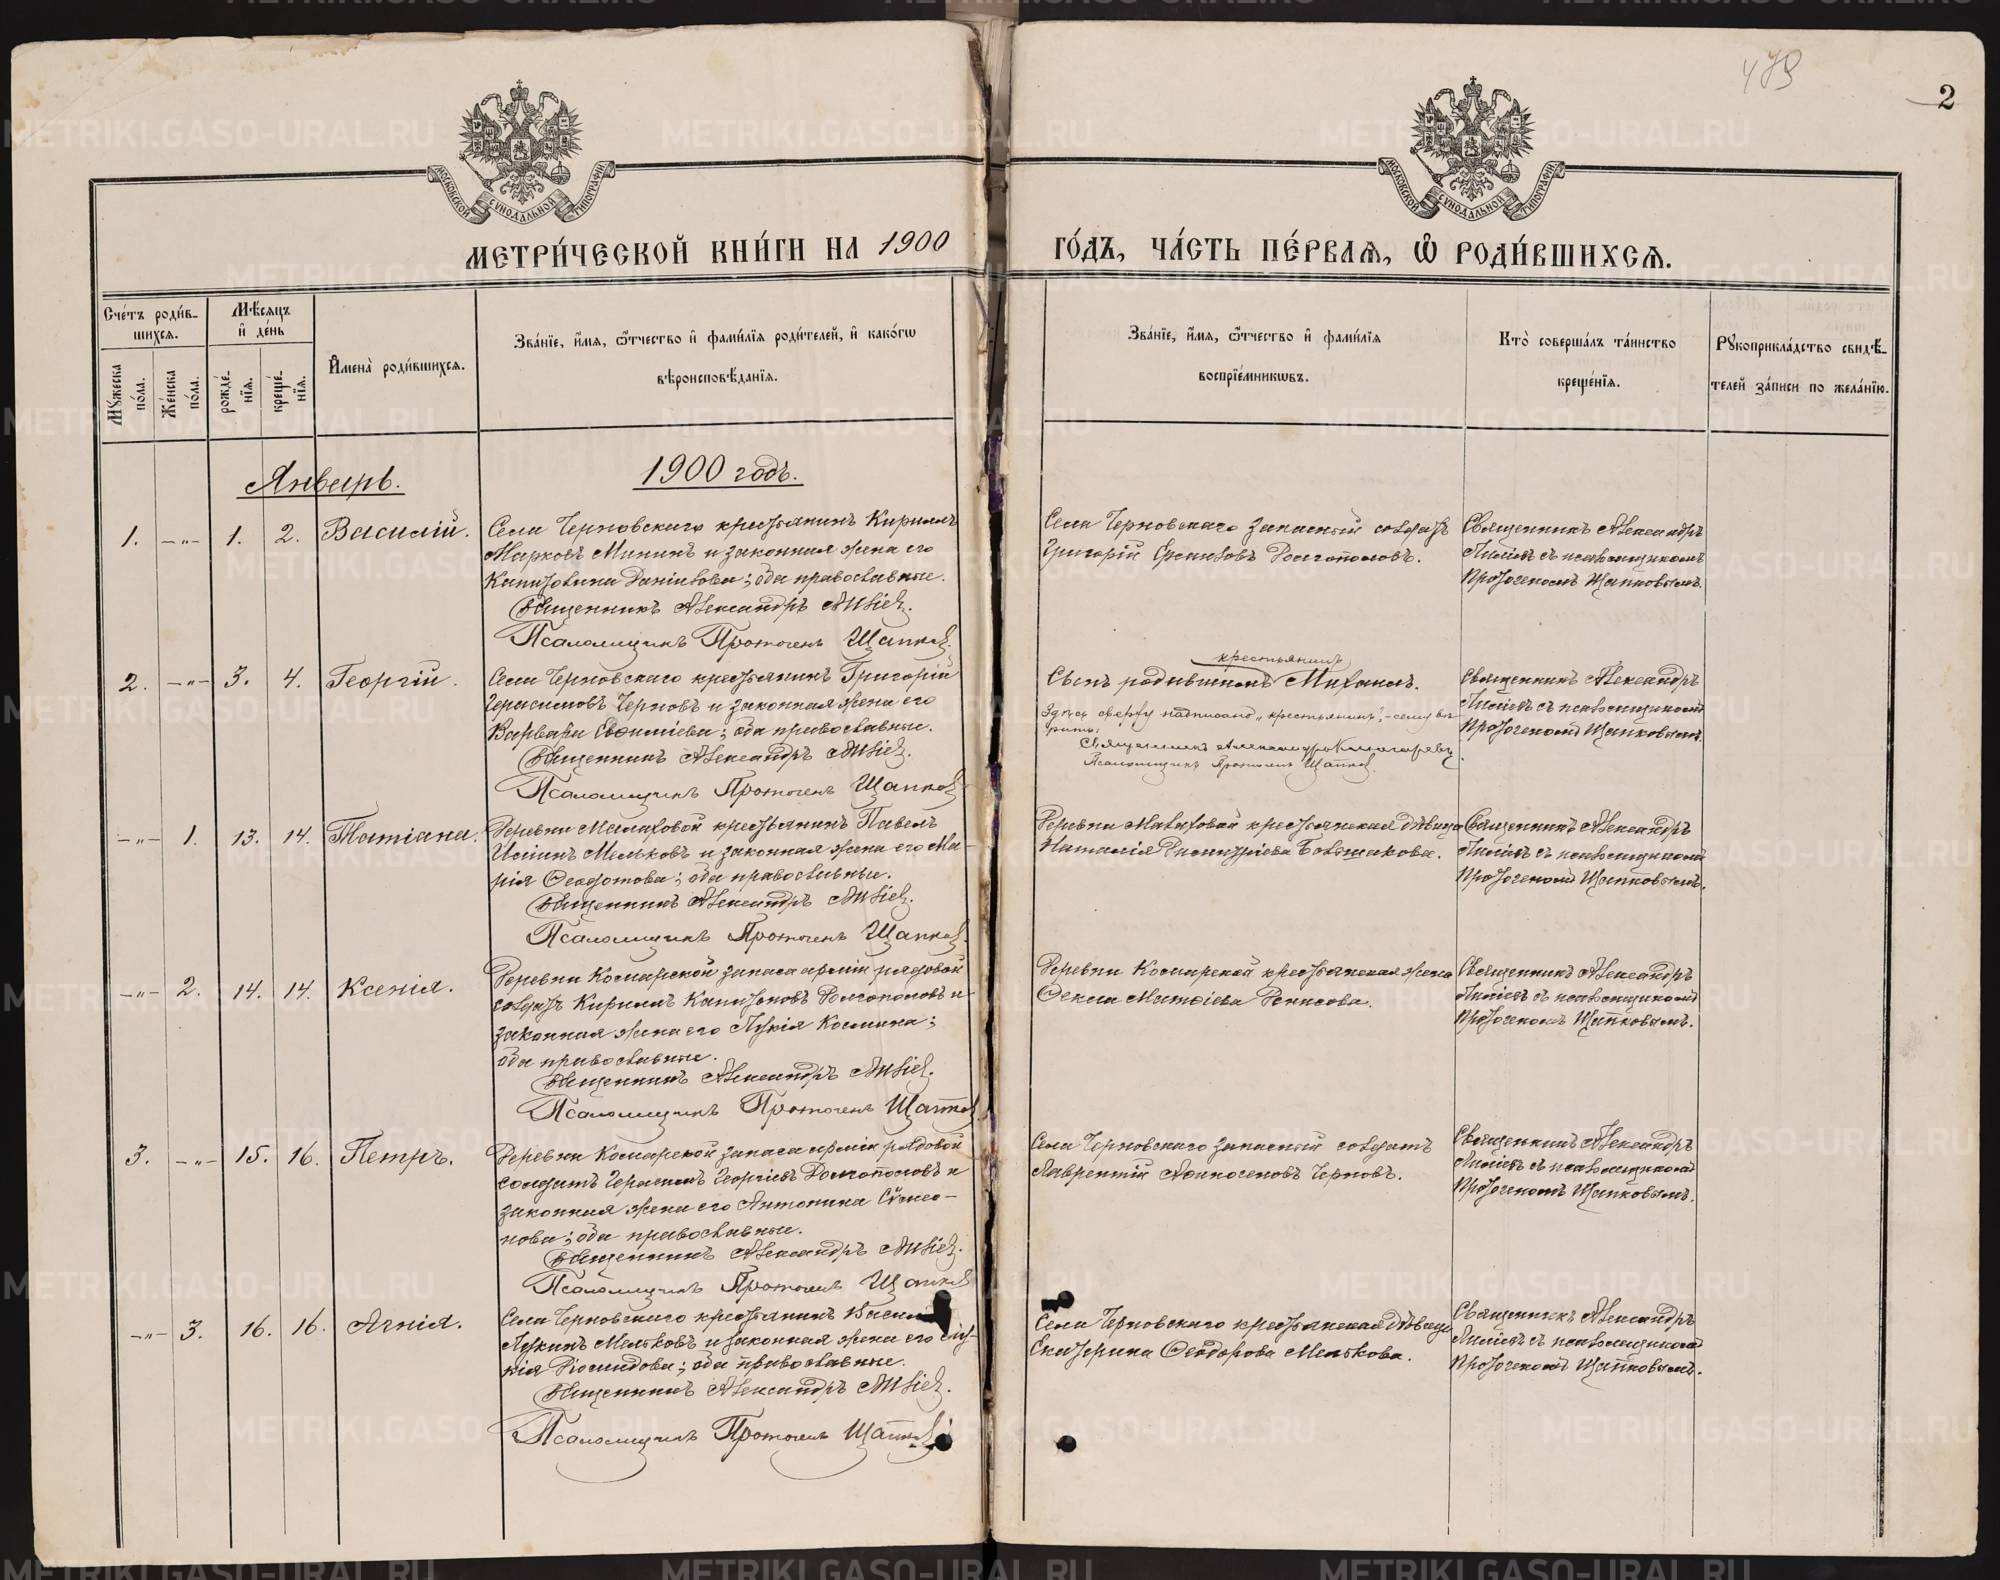 479
2
МОСКОВСКОЙ СѴНОДАЛЬНОЙ ТИПОГРАФІИ
МОСКОВСКОЙ СѴНОДАЛЬНОЙ ТИПОГРАФІИ
МЕТРИ́ЧЕСКОЙ КНИ́ГИ НА 1900
ГО́ДЪ, ЧА́СТЬ ПЕ́РВАѦ, Ѡ҆ РОДИ́ВШИХСѦ.
Сче́тъ роди́в-
шихсѧ.
Мѣ́сѧцъ
и҆ де́нь
Му́жеска
по́ла.
Же́нска
по́ла.
рожде́-
нїѧ.
креще́-
нїѧ.
И҆мена̀ роди́вшихсѧ.
Зва́нїе, и҆́мѧ, ѻ҆́тчество и҆ фами́лїѧ роди́телей, и҆ како́гѡ
вѣроисповѣ́данїѧ.
Зва́нїе, и҆́мѧ, ѻ҆́тчество и҆ фами́лїѧ
воспрїе́мникѡвъ.
Кто̀ соверша́лъ та́инство
креще́нїѧ.
Рꙋкоприкла́дство свидѣ́-
телей за́писи по жела́нїю.
Январь.
1900 годъ.
1. —„— 1. 2. Василій.
Села Черновскаго крестьянинъ Кириллъ
Марковъ Мининъ и законная жена его
Капитолина Даніилова; оба православные.
Священникъ Александръ
Псаломщикъ Протогенъ Щапковъ
Села Черновскаго запасный солдатъ
Григорій Долгополовъ.
Священникъ Александръ
съ псаломщикомъ
Протогеномъ Щапковымъ.
2. —„— 3. 4. Георгій.
Села Черновскаго крестьянинъ Григорій
Герасимовъ Черновъ и законная жена его
Варвара Евфиміева; оба православные.
Священникъ Александръ
Псаломщикъ Протогенъ Щапковъ
крестьянинъ
Сынъ родившихъ Михаилъ.
Здѣсь сверху надписано „крестьянинъ“, - сему вѣ-
рить.
Священникъ Александръ
Псаломщикъ Протогенъ Щапковъ.
Священникъ Александръ
съ псаломщикомъ
Протогеномъ Щапковымъ.
—„— 1. 13. 14. Татіана.
Деревни Малаховой крестьянинъ Павелъ
Мельковъ и законная жена его Ма-
рія Ѳеодотова; оба православные.
Священникъ Александръ
Псаломщикъ Протогенъ Щапковъ
Деревни Малаховой крестьянская дѣвица
Наталія Большакова.
Священникъ Александръ
съ псаломщикомъ
Протогеномъ Щапковымъ.
—„— 2. 14. 14. Ксенія.
Деревни Комарской запаса арміи рядовой
солдатъ Кириллъ Капитоновъ Долгополовъ и
законная жена его Лукія Космина;
оба православные.
Священникъ Александръ
Псаломщикъ Протогенъ Щапковъ
Деревни Комарской крестьянская жена
Ѳекла Матѳіева Денисова.
Священникъ Александръ
съ псаломщикомъ
Протогеномъ Щапковымъ.
3. —„— 15. 16. Петръ.
Деревни Комарской запаса арміи рядовой
солдатъ Герасимъ Георгіевъ Долгополовъ и
законная жена его Антонина Сѵмео-
нова; оба православные.
Священникъ Александръ
Псаломщикъ Протогенъ Щапковъ
Села Черновскаго запасный солдатъ
Лаврентій Черновъ.
Священникъ Александръ
съ псаломщикомъ
Протогеномъ Щапковымъ.
—„— 3. 16. 16. Агнія.
Села Черновскаго крестьянинъ
Лукинъ Мельковъ и законная жена его
оба православные.
Священникъ Александръ
Псаломщикъ Протогенъ Щапковъ
Села Черновскаго крестьянская дѣвица
Екатерина Ѳеодорова Мелькова.
Священникъ Александръ
съ псаломщикомъ
Протогеномъ Щапковымъ.
METRIKI.GASO-URAL.RU